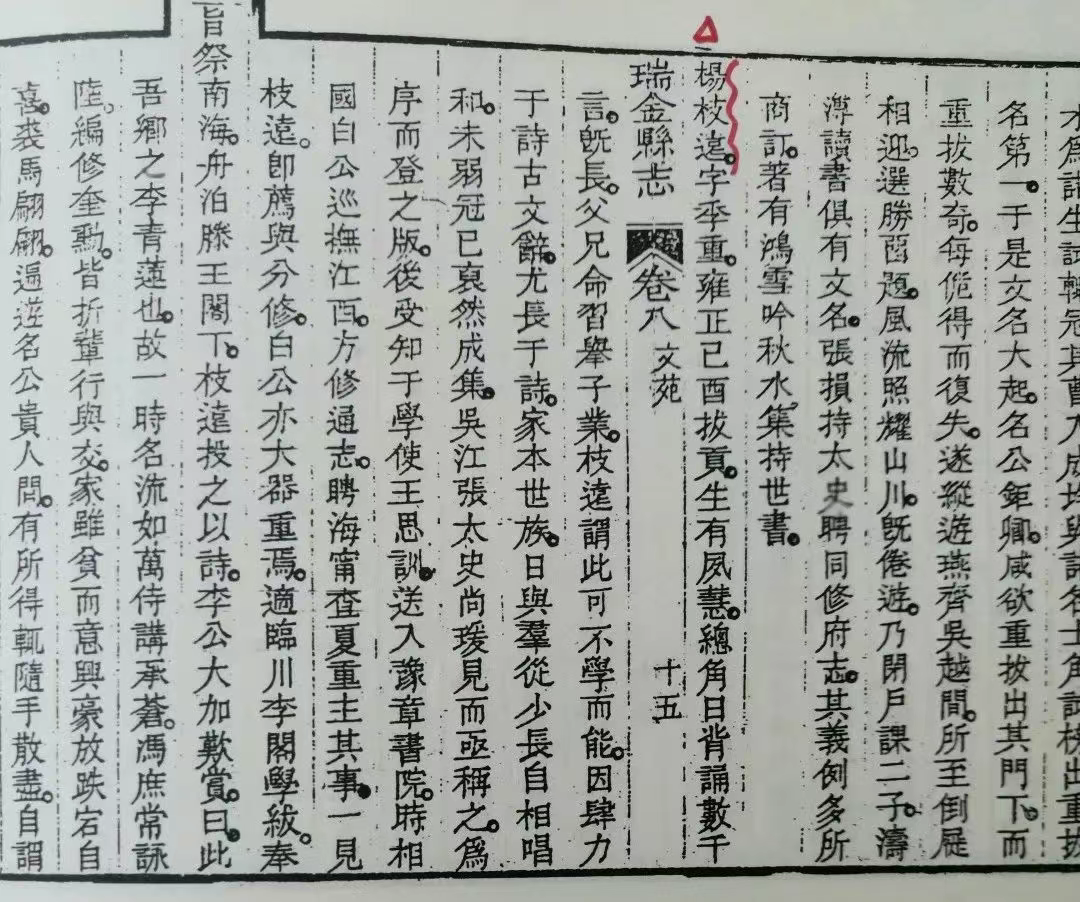 才爲諸生試輒冠其曹入成均與諸名士角試榜出重拔
名第一于是文名大起名公鉅卿咸欲重拔出其門下而
重拔數奇每俺得而復失遂縱遊燕齊吳越間所至倒屣
相迎選勝留題風流照耀山川旣倦遊乃閉戶課二子濤
溥讀書俱有文名張損持太史聘同修府志其義例多所
商訂著有鴻雪吟秋水集持世書
楊枝遠字季重雍正己酉拔貢生有夙慧總角日背誦數千
瑞金縣志 卷八 文苑 十五
言旣長父兄命習舉子業枝遠謂此可不學而能因肆力
于詩古文辭尤長于詩家本世族日與羣從少長自相唱
和未弱冠已裒然成集吳江張太史尚瑗見而亟稱之爲
序而登之版後受知于學使王思訓送入豫章書院時相
國白公巡撫江西方修通志聘海甯查夏重主其事一見
枝遠卽薦與分修白公亦大器重焉適臨川李閣學紱奉
旨祭南海舟泊滕王閣下枝遠投之以詩李公大加歎賞曰此
吾鄉之李青蓮也故一時名流如萬侍講承蒼馮庶常詠
陸編修奎勳皆折輩行與交家雖貧而意興豪放跌宕自
喜裘馬翩翩遍遊名公貴人間有所得輒隨手散盡自謂